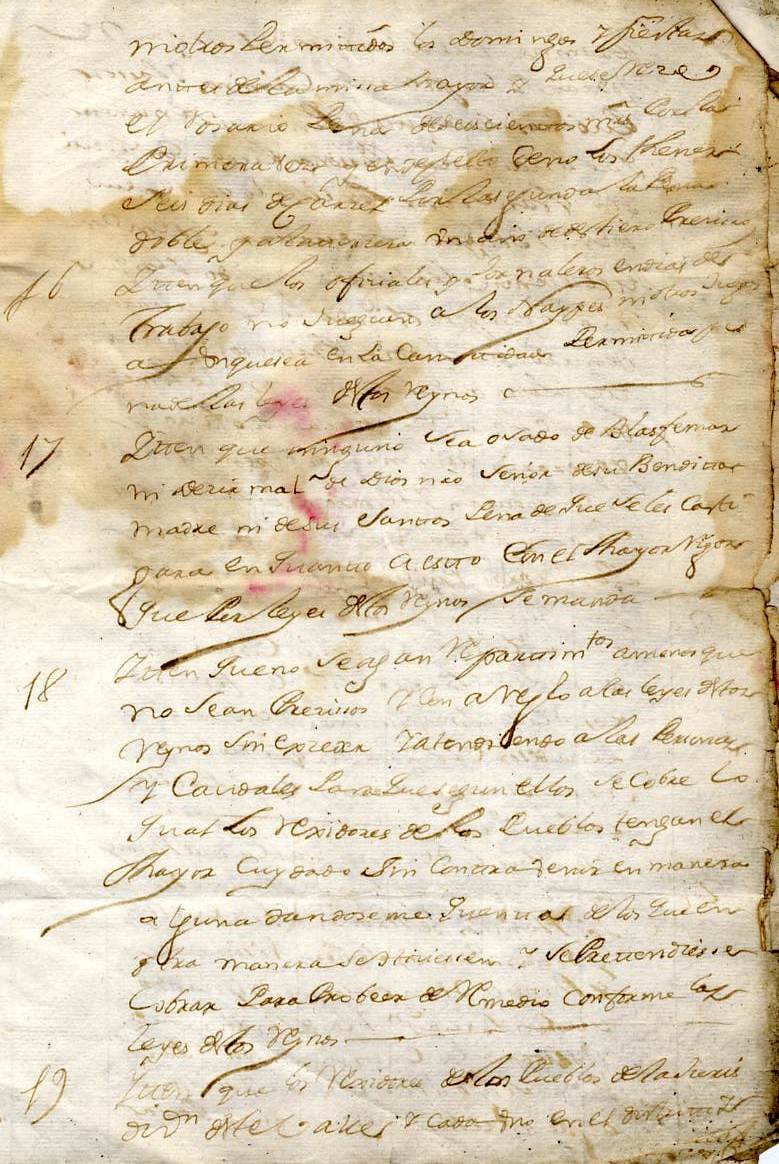 ni otros Permitidos los domingos y fiestas
antes de la misa mayor y que se reze
el rosario Pena de seiscientos mrs Por la
Primera vez y en defecto de no los thener
Seis dias de carzel Por la segunda la Pena
doble y a la tercera un año de destierro Preciso
16 Ytten que los oficiales y jornaleros en dias de
Trabajo no Jueguen a los Naypes ni otros Juegos
aunque sea en la Cantidad Permitida por
las leyes destos Reynos
17 Ytten que ninguno sea osado de Blasfemar
ni dezir mal de Dios nro Señor de su Bendita
madre ni de sus Santos Pena de que se les Casti
gara en quanto a esto Con el Mayor Rigor
que Por leyes destos Reynos se manda
18 Ytten que no se agan Repartimtos a menos que
no Sean Precisos y Con areglo a las leyes destos
Reynos Sin exceder y atendiendo a las Personas
y Caudales Para que segun ellos se Cobre lo
qual los Rexidores de los Pueblos tengan el
Mayor Cuydado Sin Contravenir en manera
alguna dandoseme quenta de los que en
otra manera se hiciesen y se Pretendiese
Cobrar Para Probeer de Remedio Conforme las
leyes destos Reynos
19 Ytten que los Rexidores de los Pueblos de la Juris
dizn deste Valle y cada uno en el distrito